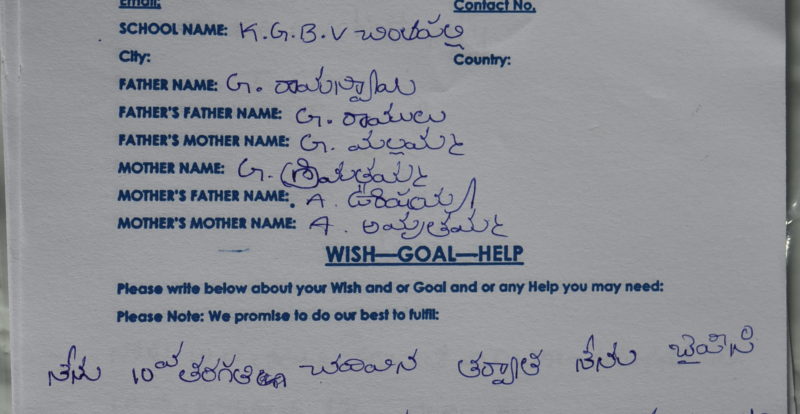 Email:
Contact No.
SCHOOL NAME: K.G.B.V చింతపల్లి
City:
Country:
FATHER NAME: G. రామస్వామి
FATHER'S FATHER NAME: G. రాములు
FATHER'S MOTHER NAME: G. మల్లమ్మ
MOTHER NAME: G.
MOTHER'S FATHER NAME: A.
MOTHER'S MOTHER NAME: A. అమృతమ్మ
WISH—GOAL—HELP
Please write below about your Wish and or Goal and or any Help you may need:
Please Note: We promise to do our best to fulfil:
నేను 10వ తరగతి చదివిన తర్వాత నేను బైపిసి